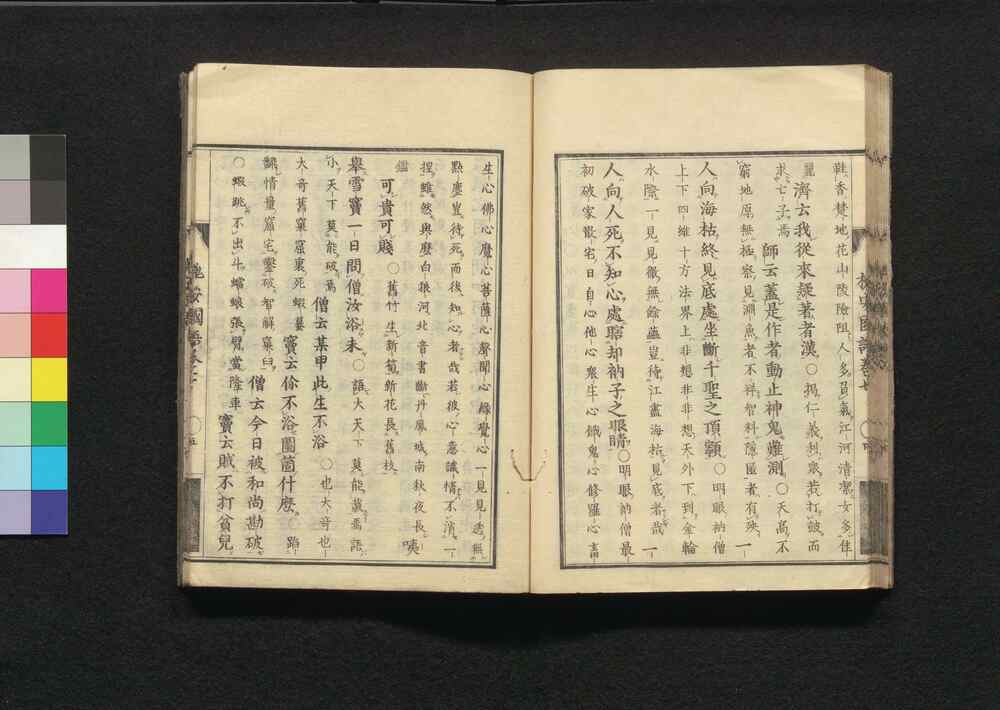 鞋香。楚地花山陵險阻。人多負氣。江河清潔。女多佳
麗。濟云我從來疑著者漢。○揭仁義利衆。若打鼓而
求亡子焉。師云蓋是作者動止神鬼難測。○天高不
窮。地原無極。察見淵魚者不祥。智料隱匿者有殃。一
人向海枯終見底處坐斷千聖之頂𩕳。○明眼衲僧
上下四維十方法界。上非想非非想天外。下到金輪
水際。一見見徹無餘蘊。豈待江盡海枯見底者哉。一
人向人死不知心處瞎却衲子之眼睛。○明眼衲僧最
初破家散宅日。自心他心衆生心餓鬼心修羅心畜
生心佛心魔心菩薩心聲聞心緣覺心一見見透無
點塵。豈待死而後知心者哉。若彼心意識情不消一
捏。雖然與麼。白狼河北音書斷。丹鳳城南秋夜長。咦
鑑
可貴可賤○舊竹生新筍。新花長舊枝。
舉雪竇一日問僧汝浴未。○語大天下莫能載焉。語
小天下莫能破焉。僧云某甲此生不浴。○也大奇也
大奇。舊窠窟裏死蝦蟇。竇云儞不浴圖箇什麼。○蹈
翻情量窟宅。鑿破智解窠臼。僧云今日被和尚勘破。
○蝦跳不出斗。螗蜋張臂當隆車。竇云賊不打貧兒。
槐安國語卷七
○五